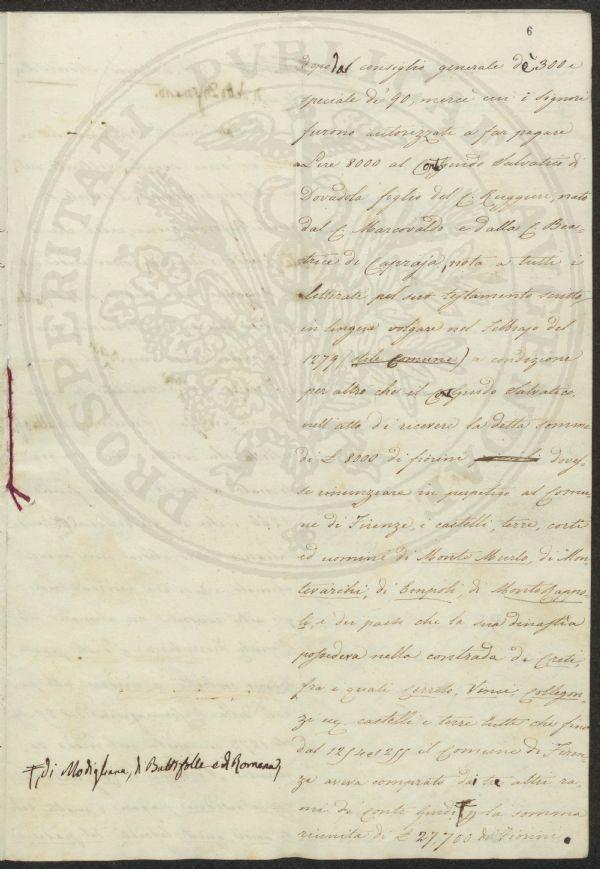 6
dopo dal consiglio generale de 300 e
speciale de' 90, mercè cui i signori
furono autorizzati a far pagare
Lire 8000 al Conte Guido Salvatico di
Dovadola figlio del C. Ruggieri, nato
dal C. Marcovaldo e dalla C. Bea-
trice di Capraja, nota a tutti i
letterati pel suo testamento scritto
in lingua volgare nel Febbrajo del
1279 (stile comune) a condizione
per altro che il Cont Guido Salvatico,
nell'atto di ricevere la detta somma
di £ 8000 di fiorini doves-
se renunziare in perpetuo al Comu-
ne di Firenze, i castelli, terre, corti
ed uomini di Monte Murlo, di Mon-
tevarchi, di Empoli, di Monte Rappo-
li, e dei paesi che la sua dinastia
possedeva nella contrada de Greti,
fra i quali Cerreto, Vinci, Collegon-
zi ec, castelli e terre tutte che fino
dal 1254 e 1255 il Comune di Firen-
ze aveva comprato dai se altri ra-
mi di Conti Guidi † la somma
riunita di £ 27,700 di Fiorini.
†, di Modigliana, di Battifolle e di Romena,
PROSPERITATI PVBLICAE